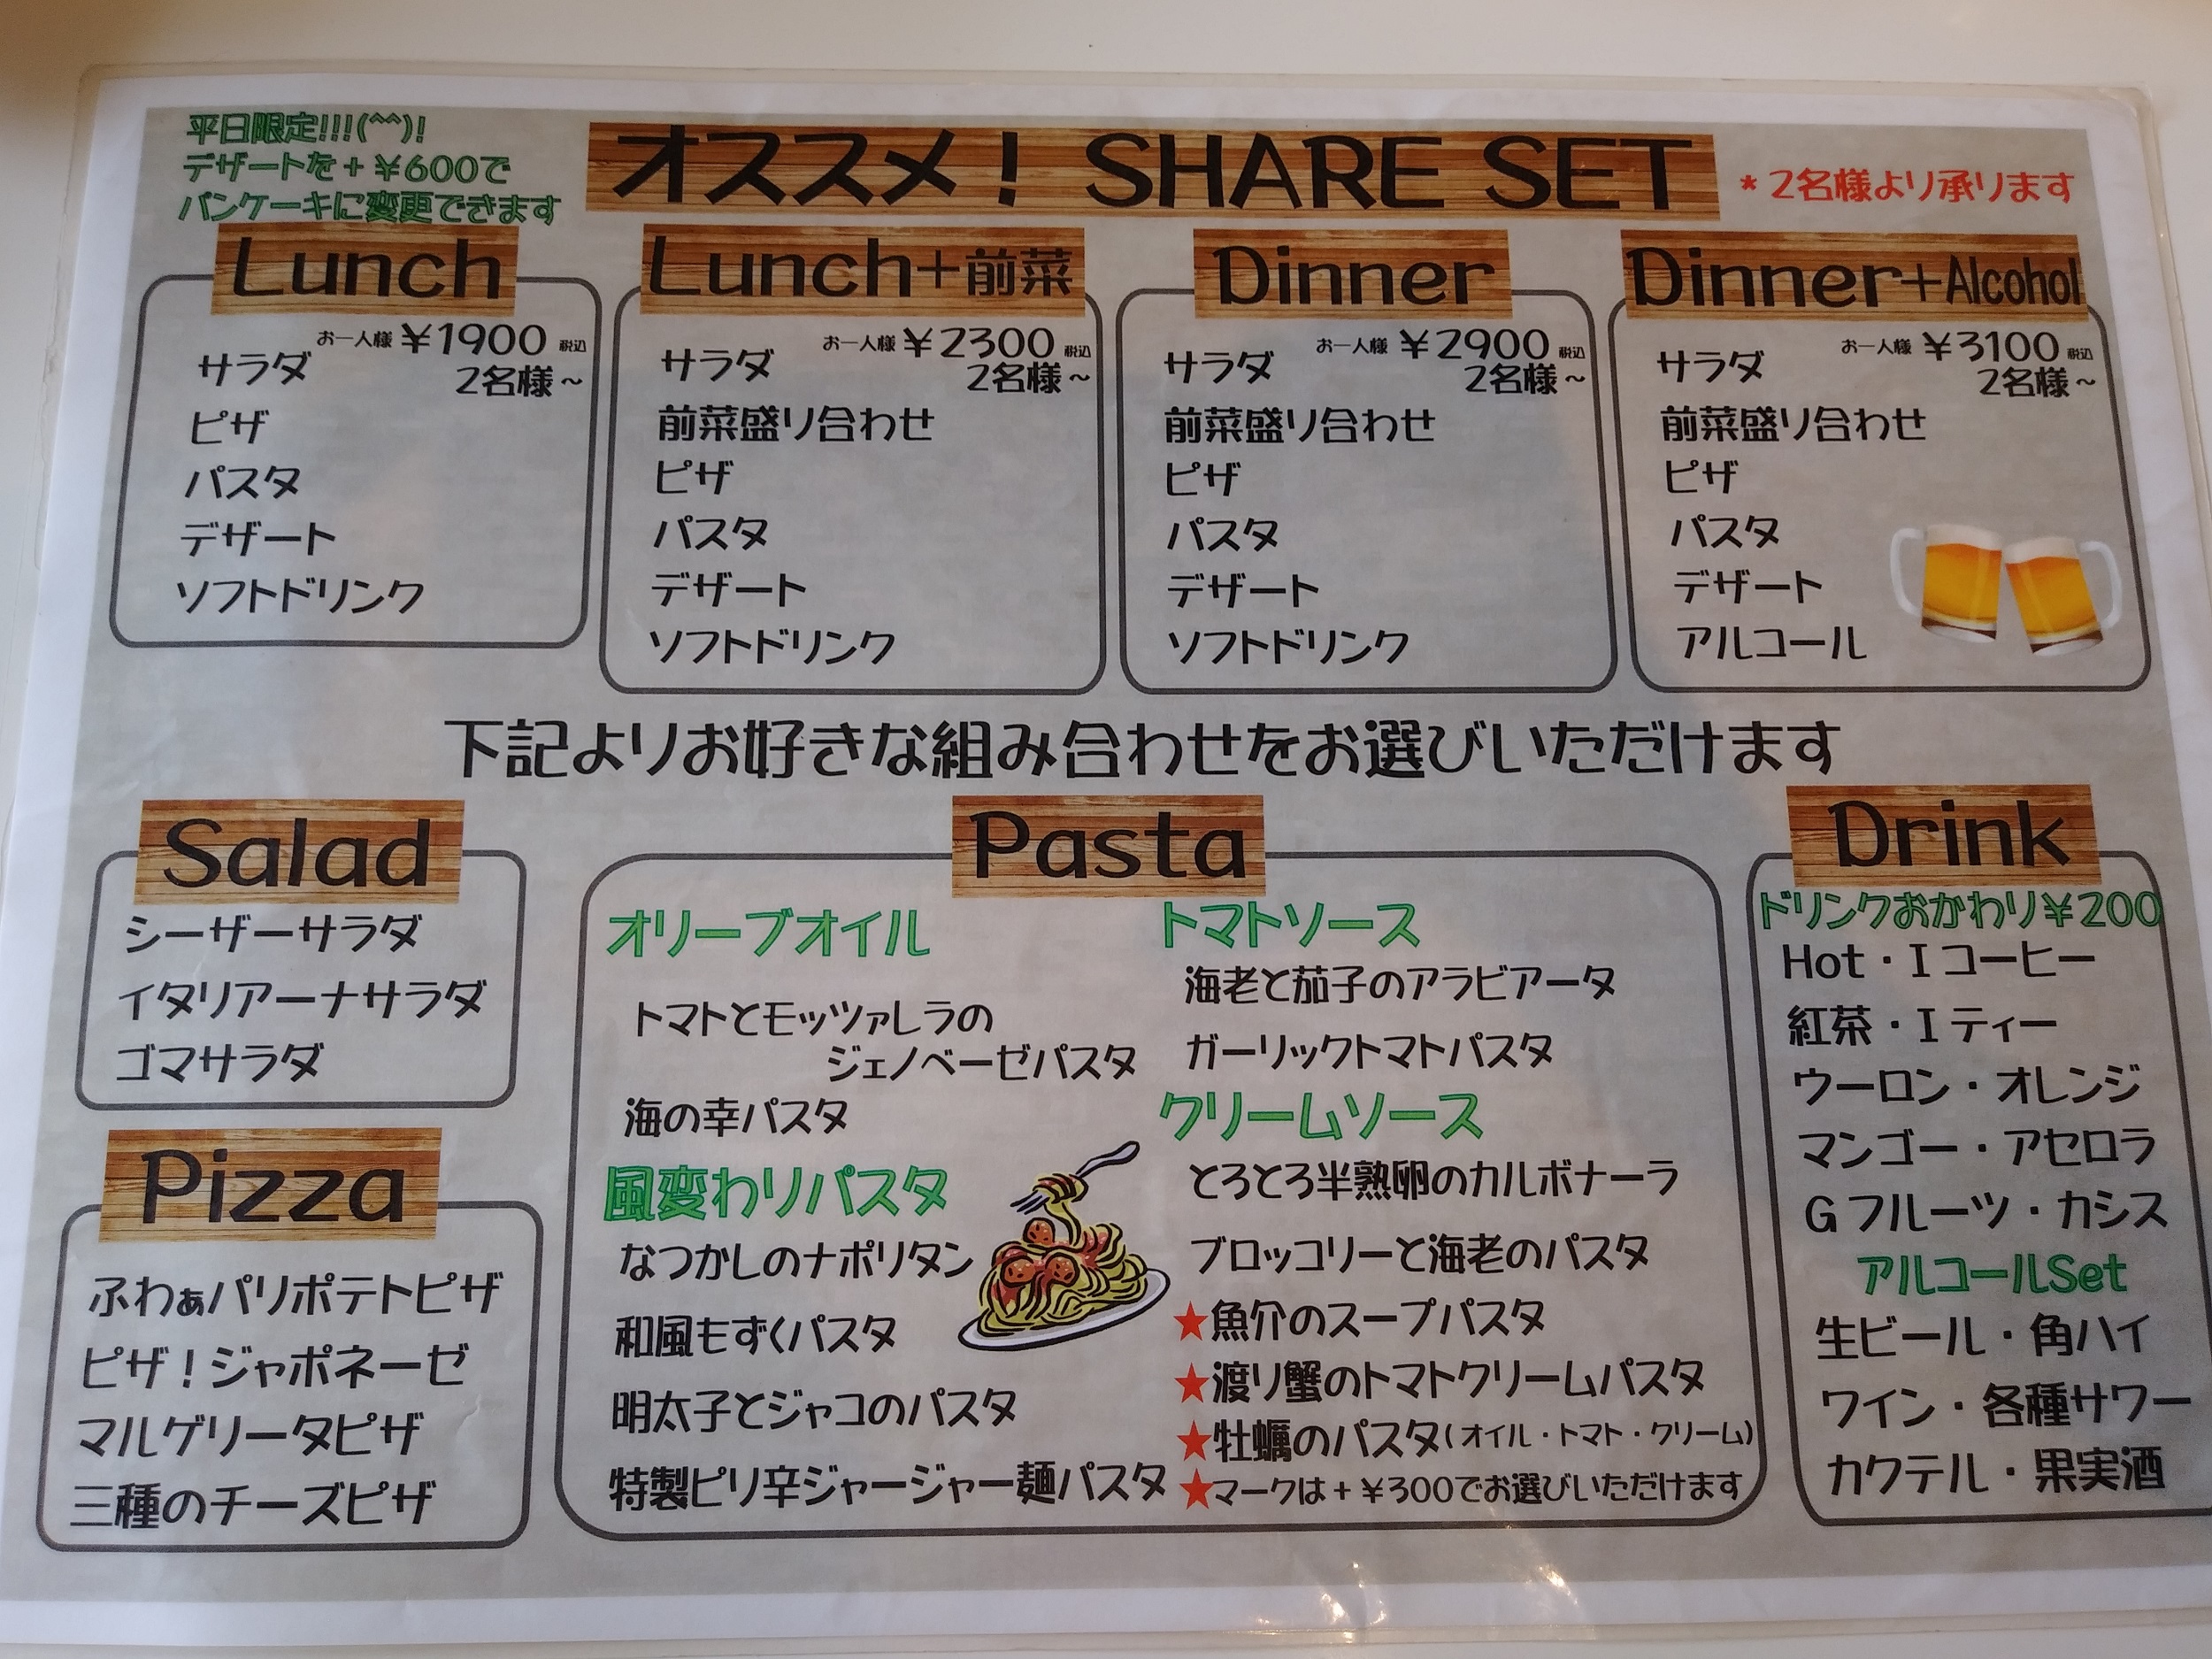 平日限定!!!(^^)!
デザートを+￥600で
パンケーキに変更できます
オススメ！ SHARE SET
*2名様より承ります
Lunch
お一人様 ￥1900 税込
2名様~
サラダ
ピザ
パスタ
デザート
ソフトドリンク
Lunch+前菜
お一人様 ￥2300 税込
2名様~
サラダ
前菜盛り合わせ
ピザ
パスタ
デザート
ソフトドリンク
Dinner
お一人様 ￥2900 税込
2名様~
サラダ
前菜盛り合わせ
ピザ
パスタ
デザート
ソフトドリンク
Dinner+Alcohol
お一人様 ￥3100 税込
2名様~
サラダ
前菜盛り合わせ
ピザ
パスタ
デザート
アルコール
下記よりお好きな組み合わせをお選びいただけます
Salad
シーザーサラダ
イタリアーナサラダ
ゴマサラダ
Pizza
ふわぁパリポテトピザ
ピザ！ジャポネーゼ
マルゲリータピザ
三種のチーズピザ
Pasta
オリーブオイル
トマトとモッツァレラの
ジェノベーゼパスタ
海の幸パスタ
風変わりパスタ
なつかしのナポリタン
和風もずくパスタ
明太子とジャコのパスタ
特製ピリ辛ジャージャー麺パスタ
トマトソース
海老と茄子のアラビアータ
ガーリックトマトパスタ
クリームソース
とろとろ半熟卵のカルボナーラ
ブロッコリーと海老のパスタ
★魚介のスープパスタ
★渡り蟹のトマトクリームパスタ
★牡蠣のパスタ(オイル・トマト・クリーム)
★マークは+￥300でお選びいただけます
Drink
ドリンクおかわり￥200
Hot・Iコーヒー
紅茶・Iティー
ウーロン・オレンジ
マンゴー・アセロラ
Gフルーツ・カシス
アルコールSet
生ビール・角ハイ
ワイン・各種サワー
カクテル・果実酒